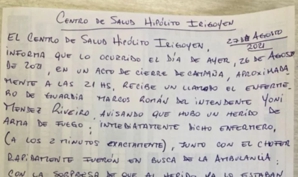 CENTRO DE SALUD HIPÓLITO IRIGOYEN
27 DE AGOSTO
2021
EL CENTRO DE SALUD HIPÓLITO IRIGOYEN,
INFORMA QUE LO OCURRIDO EL DÍA DE AYER, 26 DE AGOSTO
DE 2021, EN UN ACTO DE CIERRE DE CAMPAÑA, APROXIMADA
MENTE A LAS 21 HS, RECIBE UN LLAMADO EL ENFERME
RO DE GUARDIA MARCOS ROMÁN DEL INTENDENTE YONI
MENDEZ RIVEIRO, AVISANDO QUE HUBO UN HERIDO DE
ARMA DE FUEGO; INMEDIATAMENTE DICHO ENFERMERO,
(A LOS 2 MINUTOS EXACTAMENTE), JUNTO CON EL CHOFER
RAPIDAMENTE FUERON EN BUSCA DE LA AMBULANCIA;
CON LA SORPRESA DE QUE AL HERIDO YA LO ESTABAN